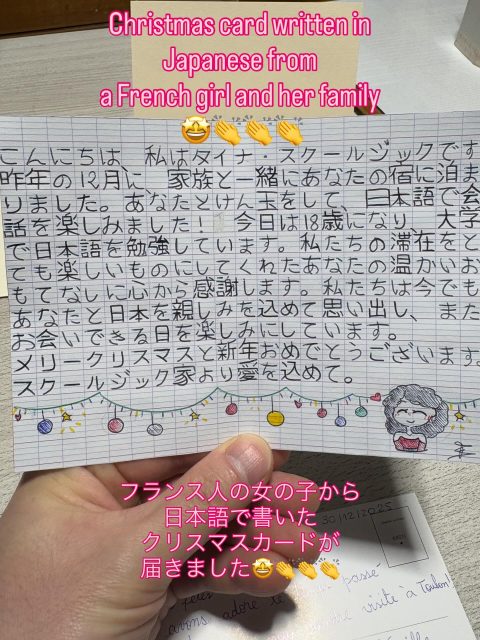 Christmas card written in
Japanese from
a French girl and her family
🤩👏👏👏
こんにちは、私はタイナ・スクールジックです
昨年の12月に、家族と一緒にあなたの宿に泊ま
りました。あなたとけん玉をして、日本語で会
話を楽しみました！ 今日は18歳になり、大学
で日本語を勉強しています。私たちの滞在をと
ても楽しいものにしてくれたあなたの温かいお
もてなしに心から感謝します。私たちは今でも
あなたと日本を親しみを込めて思い出し、また
お会いできる日を楽しみにしています。
メリークリスマスと新年おめでとうございます。
スクールジック家より愛を込めて。
フランス人の女の子から
日本語で書いた
クリスマスカードが
届きました🤩👏👏👏
30/12/2025
passé
avons adoré
visite à Toulon!